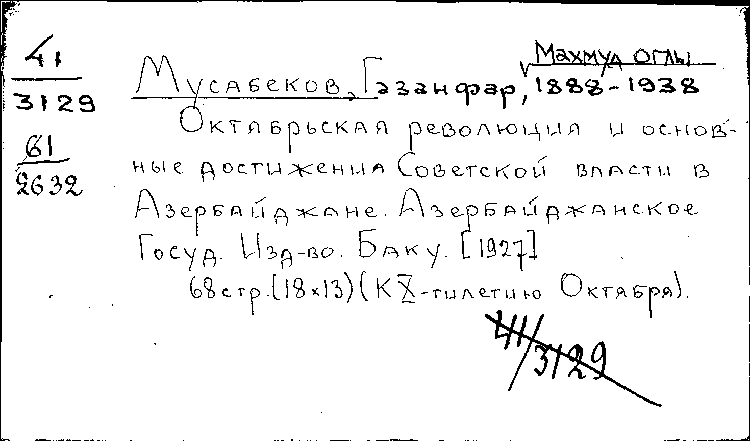 41
3129
61
2632
Махмуд оглы
Мусабеков, Газанфар, 1888-1938
Октябрьская революция и основ-
ные достижения Советской власти в
Азербайджане. Азербайджанское
Госуд. Изд-во. Баку. [1927]
68 стр. (18х13) (К X-тилетию Октября).
41/3129